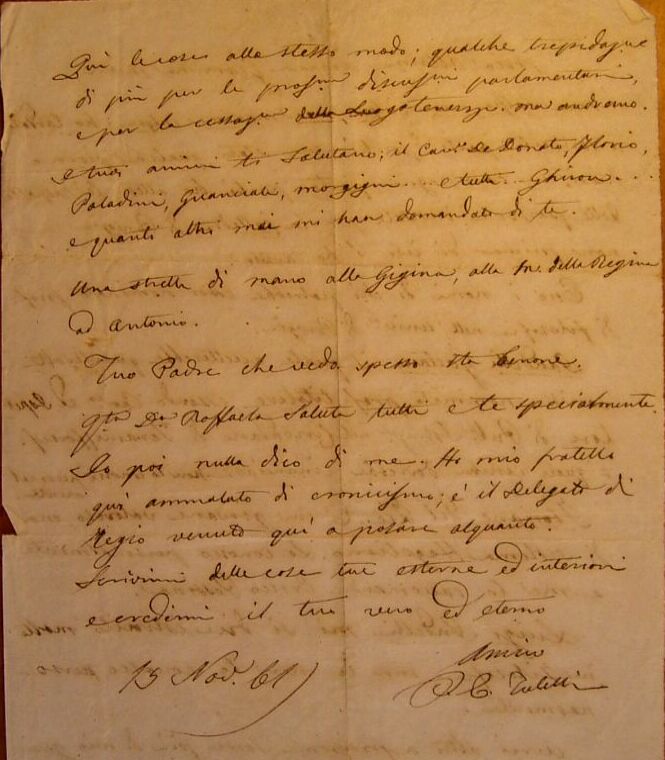 Qui le cose allo stesso modo; qualche trepidazne
di più per le prossime discussni parlamentari,
e per la cessazne della Luogotenenza. ma andremo.
e tuoi amici ti salutano; il Cavr. De Donato, Florio,
Paladini, Guanciali, morgigni e tutti Ghiron...
e quanti altri mai mi han domandato di te.
Una stretta di mano alla Gigina, alla della Regina
ad Antonio.
Tuo Padre che vedo spesso sta benone.
qta Da Raffaela saluta tutti e te specialmente.
Io poi nulla dico di me. Ho mio fratello
quì ammalato di cronicismo; è il Delegato di
Regio venuto quì a posare alquanto.
Scrivimi delle cose tue esterne ed interiori
e credimi il tuo vero ed eterno
Amico
13 Nov. 61